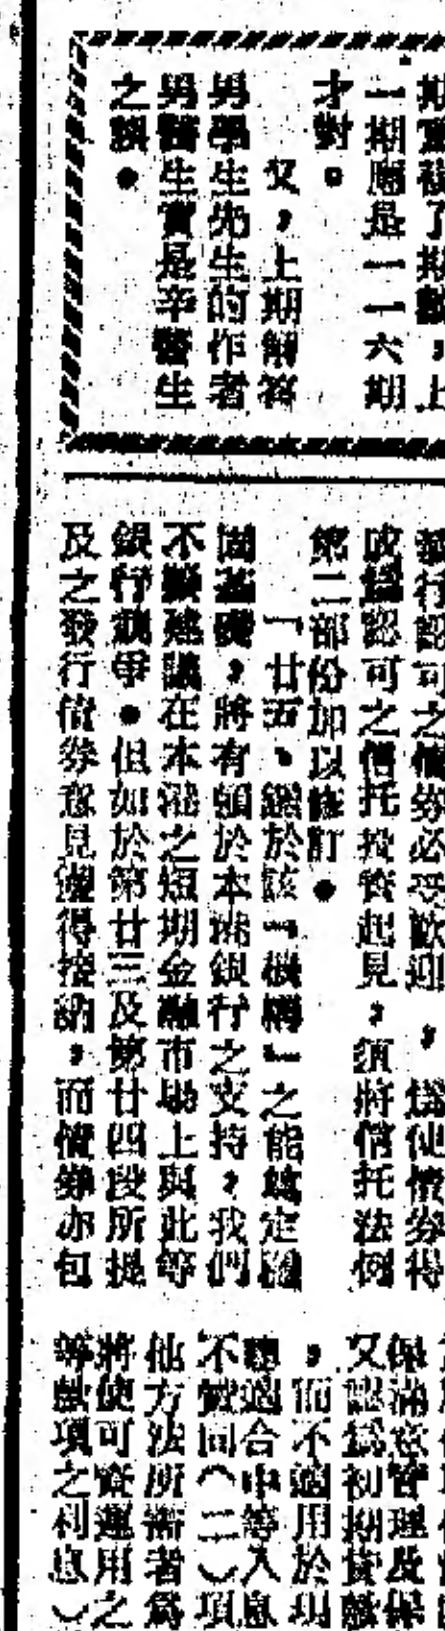 一期應是一一六期
才對。
又，上期解答
男學生先生的作者
男醫生實是辛醫生
之誤。
發行認可之債券必受歡迎，爲使債券得
成爲認可之信托投資起見，須將信托法例
第二部份加以修訂。
「廿五、鑑於該「機構」之能爲定鞏
固基礎，將有賴於本港銀行之支持，我們
不擬建議在本港之短期金融市場上與此等
銀行競爭。但如於第廿三及第廿四段所提
及之發行債券意見獲得接納，而債券亦包
保滿意管理及保
又認爲初期貸款
，而不適用於現
適合中等入息
不實同（二）項
他方法所需者爲
將使可資運用之
等款項之利息）